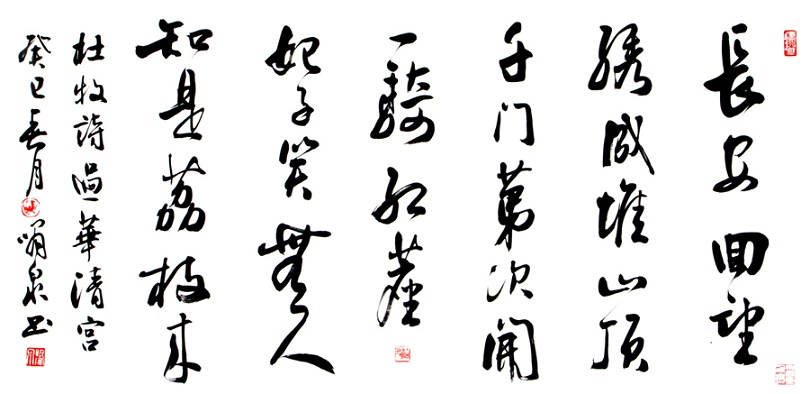 長安回望
绣成堆山顶
千门第次開
一騎红塵
妃子笑無人
知是荔枝来
杜牧詩過華清宫
癸巳春月明泉书